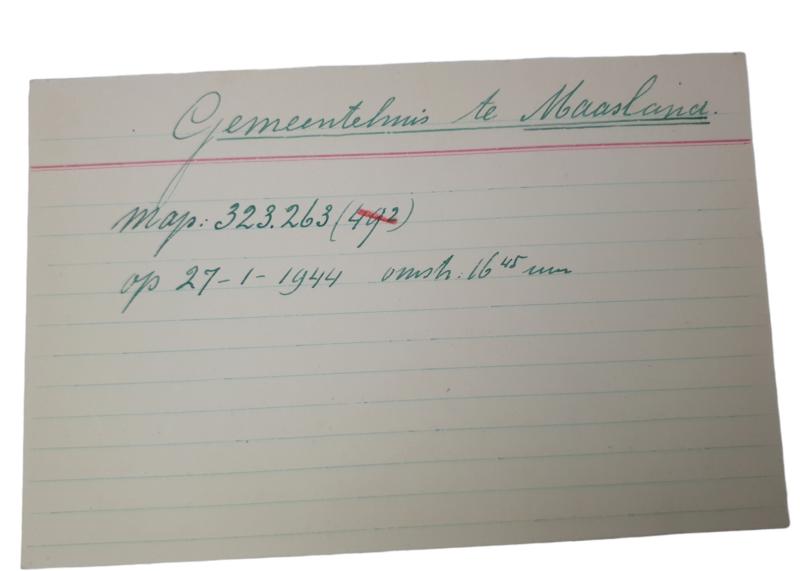 Gemeentehuis te Maasland.
map: 323.263 (492)
op 27-1-1944 omstr. 16 45 uur